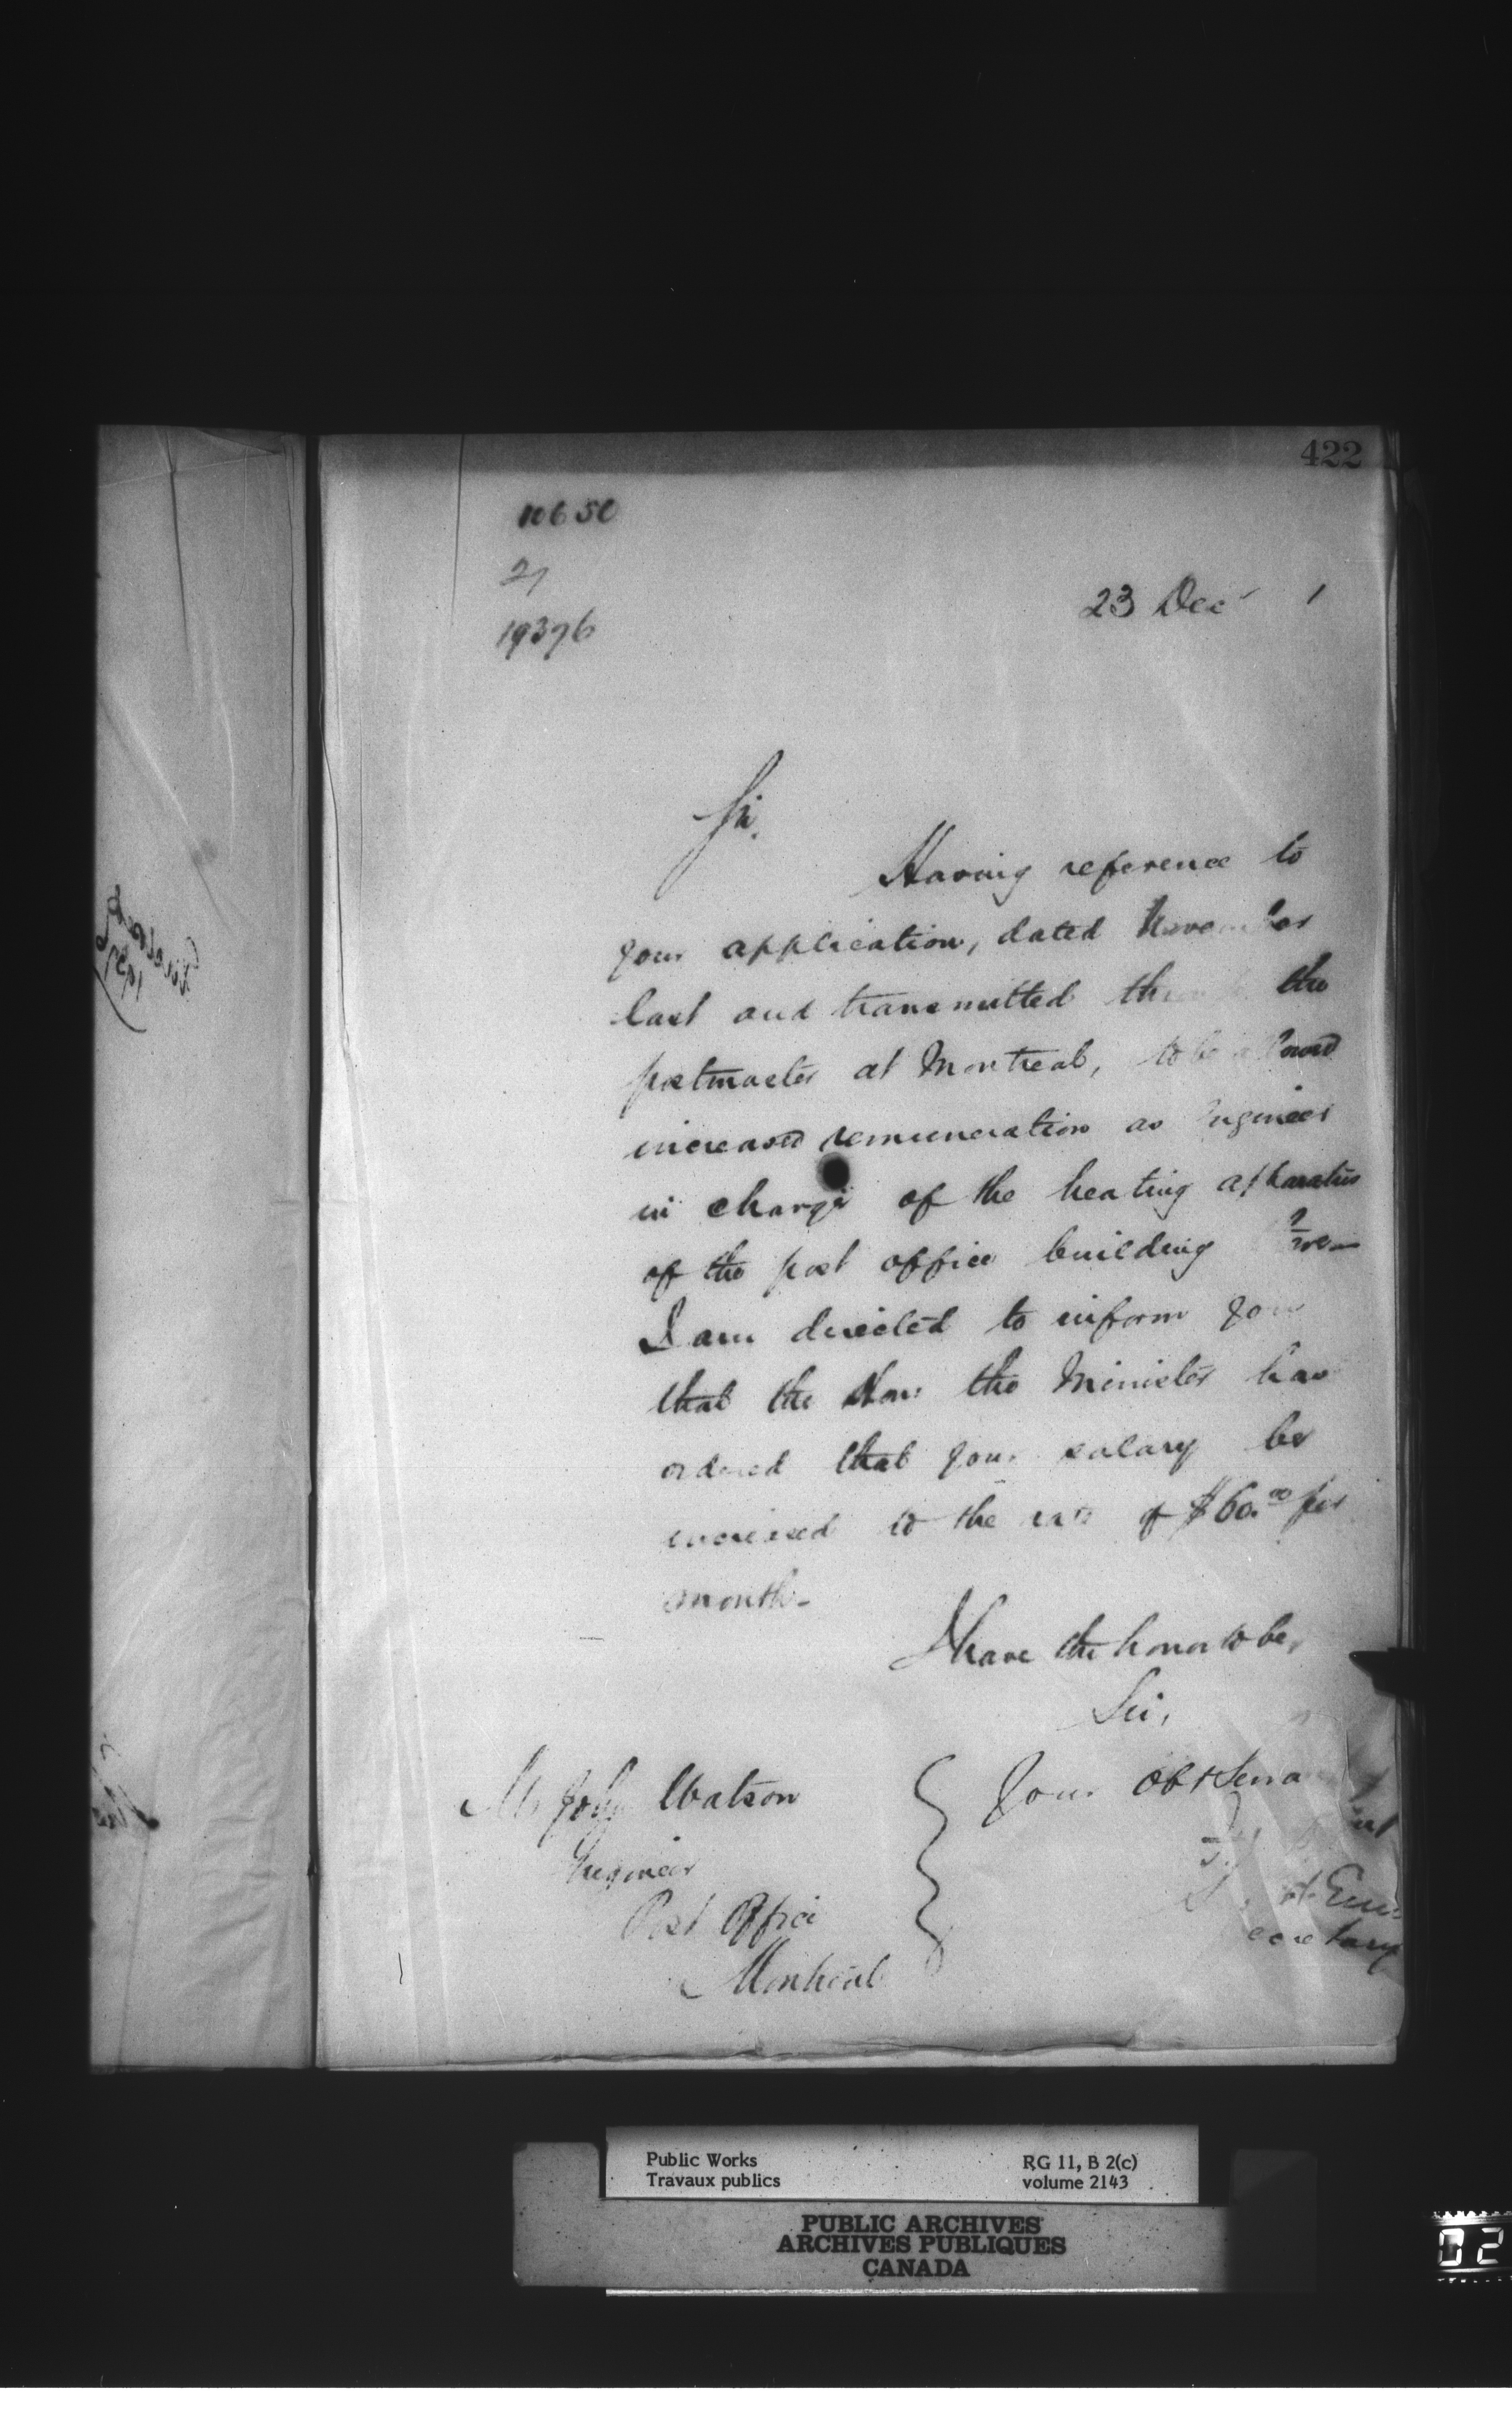 422
10650
27
19376
23 Dec 1
Sir.
Having reference to
your application, dated November
last and transmitted through the
postmaster at Montreal, to be allowed
increased remuneration as Engineer
in charge of the heating apparatus
of the post office building
I am directed to inform you
that the Hon: the Minister has
ordered that your salary be
increased to the rate of $60.00 per
month-
I have the honor to be,
Sir,
Your Obt Serva
ecretary
Mr John Watson
Engineer
Post Office
Montreal
Public Works
Travaux publics
RG 11, B 2(c)
volume 2143
PUBLIC ARCHIVES
ARCHIVES PUBLIQUES
CANADA
02